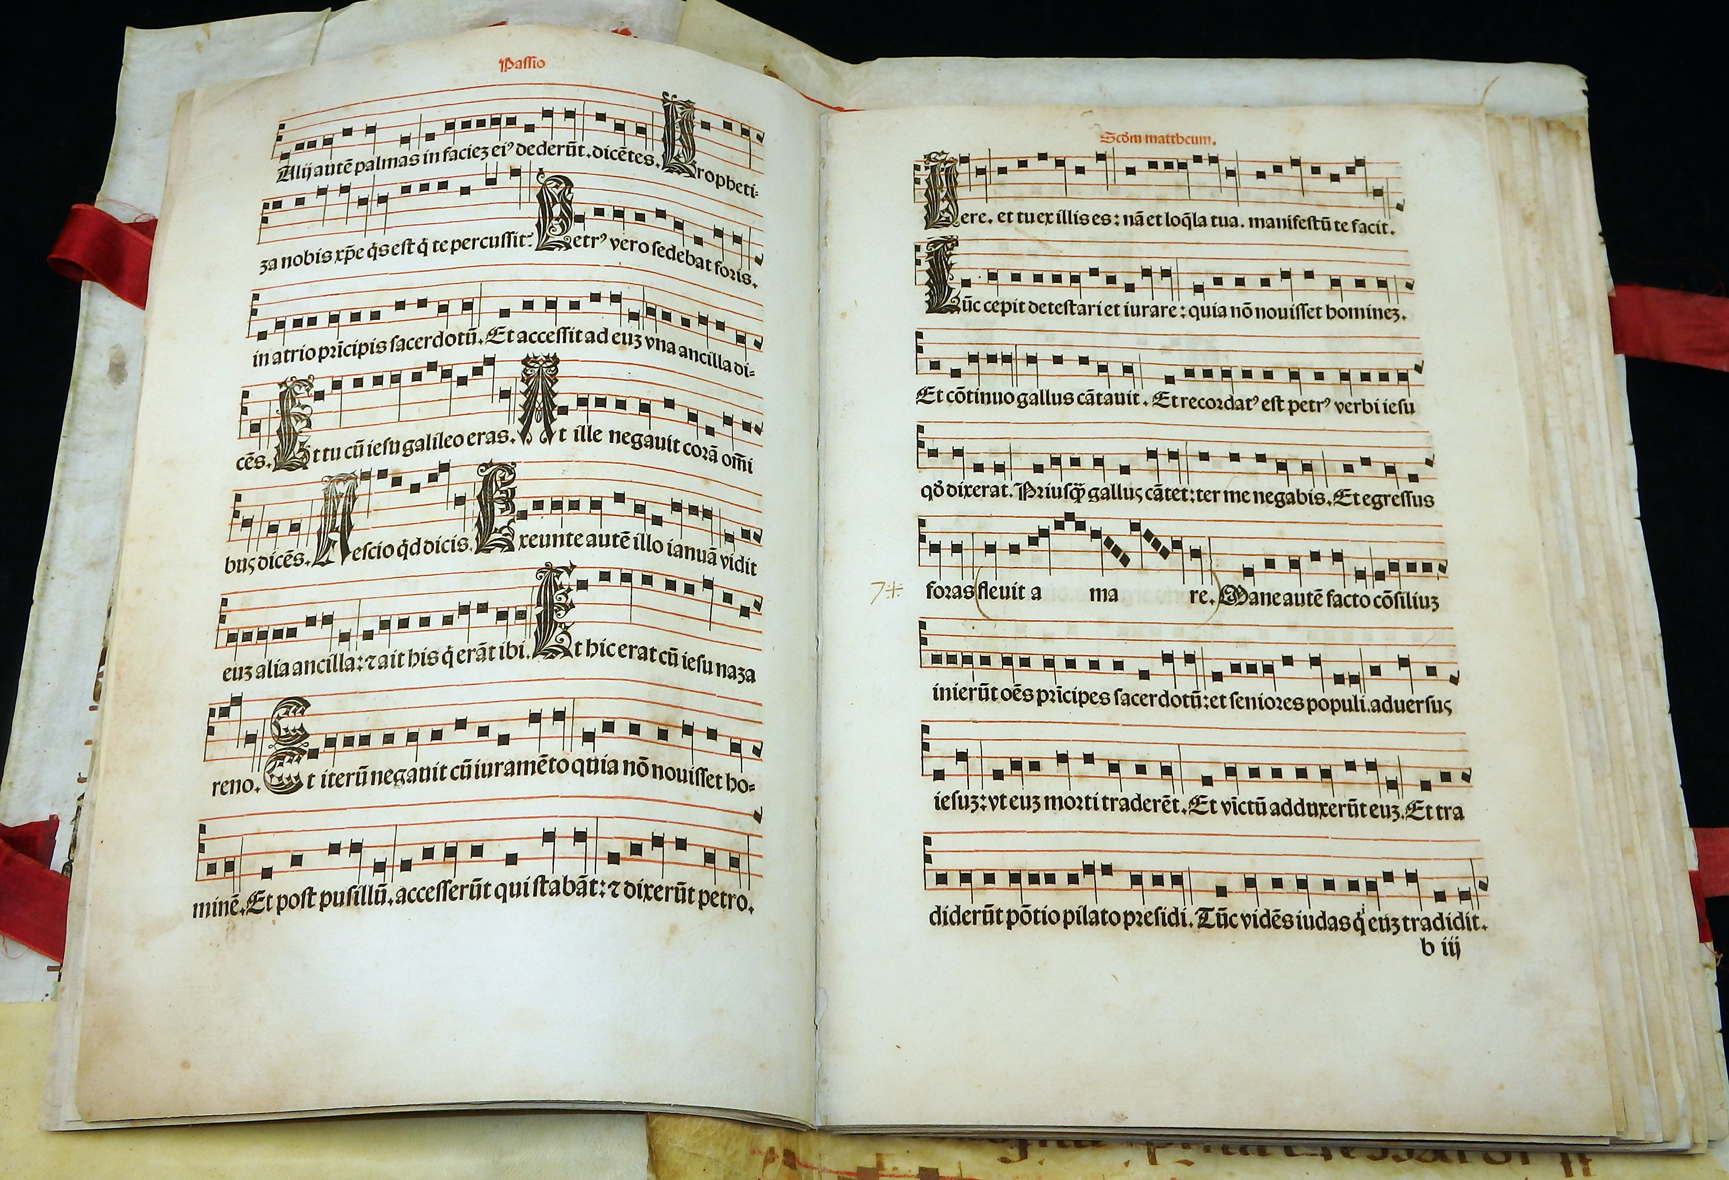 Passio
Alij autē palmas in faciez ei⁹ dederūt. dicētes. Propheti-
za nobis xp̄e q̇s est q̇ te percussit: Petr⁹ vero sedebat foris.
in atrio prīcipis sacerdotū. Et accessit ad euz vna ancilla di-
cēs. Et tu cū iesu galileo eras. At ille negauit corā om̄i
bus dicēs. Nescio qd dicis. Exeunte autē illo ianuā vidit
euz alia ancilla: ⁊ ait his q̇ erāt ibi. Et hic erat cū iesu naza
reno. Et iterū negauit cū iuramēto quia nō nouisset ho-
minē. Et post pusillū. accesserūt qui stabāt: ⁊ dixerūt petro.
Scd̄m mattheum.
Uere. et tu ex illis es: nā et loq̄la tua. manifestū te facit.
Tūc cepit detestari et iurare: quia nō nouisset hominez.
Et cōtinuo gallus cātauit. Et recordat⁹ est petr⁹ verbi iesu
qđ dixerat. Priusq̄ gallus cātet: ter me negabis. Et egressus
foras fleuit a ma re. Mane autē facto cōsiliuz
inierūt oēs prīcipes sacerdotū: et seniores populi. aduersus
iesuz: vt euz morti traderēt. Et vīctū adduxerūt euz. Et tra
diderūt pōtio pilato presidi. Tūc vidēs iudas q̇ euz tradidit.
b iij